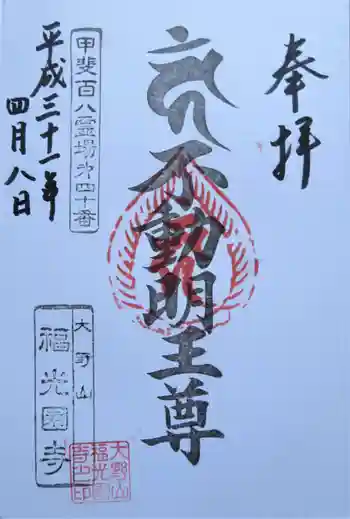 奉拝
不動明王尊
甲斐百八霊場第四十番
平成三十一年
四月八日
大野山
福光園寺
大野山
福光園
寺之印